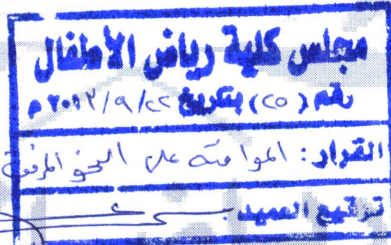 مجلس كلية رياض الأطفال
رقم (٢٥) بتاريخ ٢٠١٣/٩/٢٢ م
القرار: الموافقة على النحو المرفق
توقيع العميد